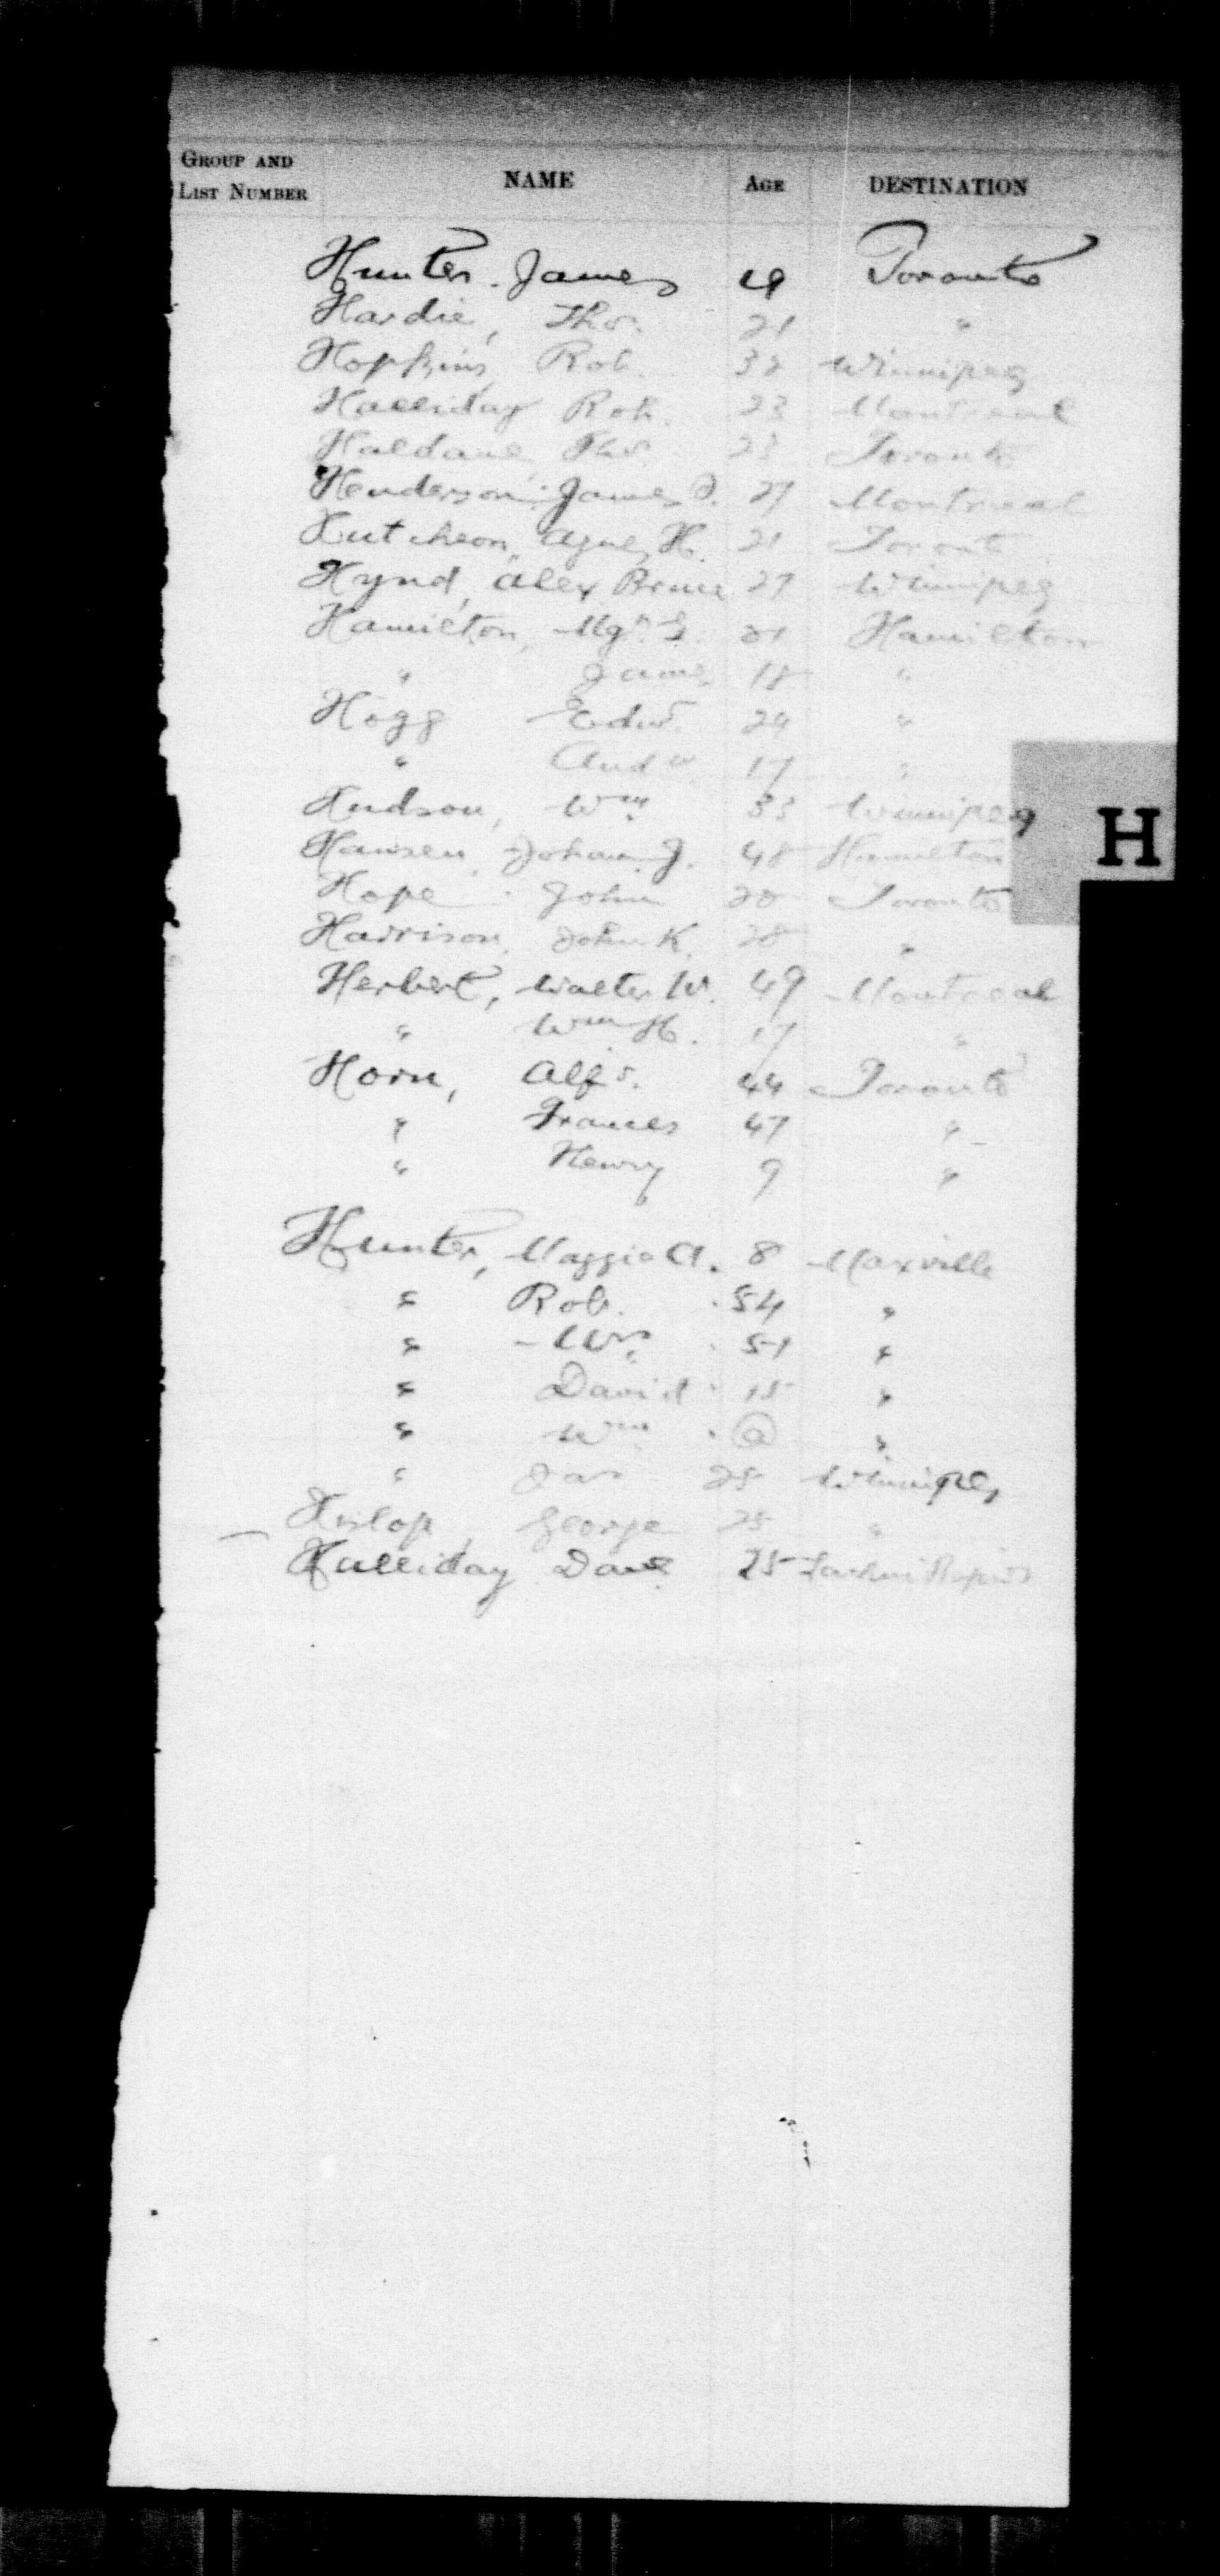 GROUP AND LIST NUMBER NAME AGE DESTINATION
Hunter. James 19 Toronto
Hardie, Thos. 21 "
Hopkins, Rob. 32 Winnipeg
Halliday Rob. 23 Montreal
Haldane, Thos. 23 Toronto
Henderson, James 27 Montreal
Hutcheon, Agnes H. 21 Toronto
Hynd, Alex Bruce 27 Winnipeg
Hamilton, Hamilton
" James 18 "
Hogg Edwd. 24 "
" Andw 17 "
Hudson, Wm 33 Winnipeg
H
Hansen, Johan J. 48 Hamilton
Hope John 20 Toronto
Harrison, John K. 28 "
Herbert, Walter W. 49 Montreal
" Wm H. 17 "
Horn, 44 Toronto
" Frances 47 "
" Henry 9 "
Hunter, Maggie A. 8 Maxville
" Rob. 54 "
" Mrs 51 "
" David 15 "
" Wm "
" Jas 25 Winnipeg
Hislop, George 25 "
Halliday Dav 25